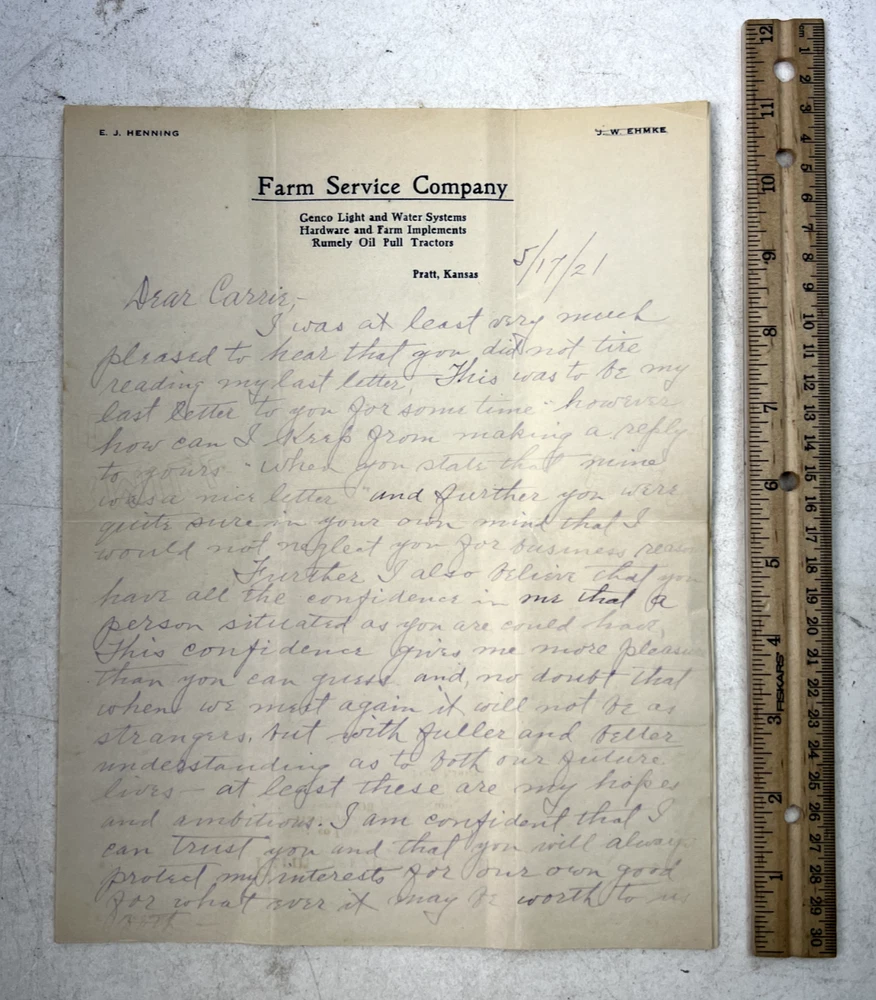 E. J. HENNING
J. W. EHMKE
Farm Service Company
Genco Light and Water Systems
Hardware and Farm Implements
Rumely Oil Pull Tractors
Pratt, Kansas
5/17/21
Dear Carrie,-
I was at least very much
pleased to hear that you did not tire
reading my last letter, This was to be my
last letter to you for some time - however
how can I keep from making a reply
to yours - when you state that mine
was a nice letter" and further you were
quite sure in your own mind that I
would not neglect you for business reason
Further I also believe that you
have all the confidence in me that a
person situated as you are could have,
This confidence gives me more pleasure
than you can guess and, no doubt that
when we meet again it will not be as
strangers, but with fuller and better
understanding as to both our future
lives - at least these are my hopes
and ambitions. I am confident that I
can trust you and that you will always
protect my interests for our own good
for what ever it may be worth to us
12
11
10
9
8
7
6
5
4
3
2
1
FISKARS
cm
1
2
3
4
5
6
7
8
9
10
11
12
13
14
15
16
17
18
19
20
21
22
23
24
25
26
27
28
29
30